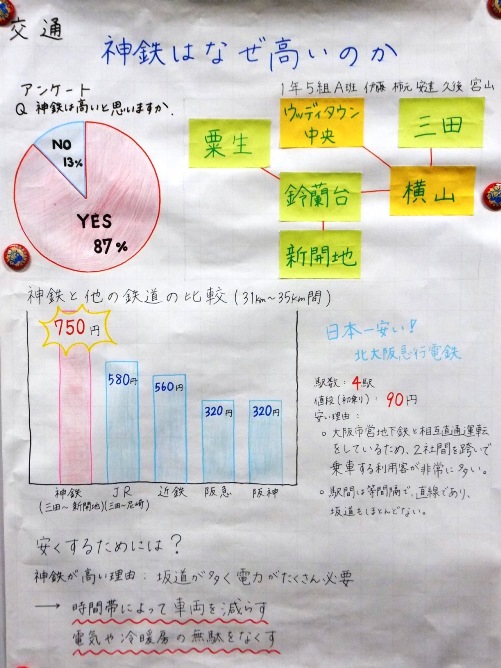 交通
神鉄はなぜ高いのか
アンケート
Q 神鉄は高いと思いますか.
1年5組A班 伊藤 柿元 安達 久後 宮山
NO
13%
YES
87%
粟生
ウッディタウン
中央
三田
鈴蘭台
横山
新開地
神鉄と他の鉄道の比較(31km〜35km間)
750円
580円
560円
320円
320円
神鉄
JR
近鉄
阪急
阪神
(三田〜新開地)
(三田〜尼崎)
日本一安い!
北大阪急行電鉄
駅数:4駅
値段(初乗り):90円
安い理由:
○大阪市営地下鉄と相互直通運転
をしているため、2社間を跨いで
乗車する利用客が非常に多い。
○駅間は等間隔で、直線であり、
坂道もほとんどない。
安くするためには?
神鉄が高い理由:坂道が多く電力がたくさん必要
→ 時間帯によって車両を減らす
電気や冷暖房の無駄をなくす